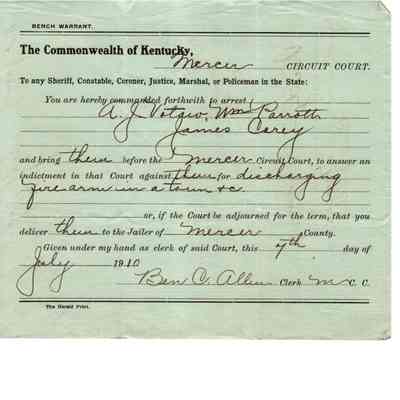 BENCH WARRANT.
The Commonwealth of Kentucky,
Mercer CIRCUIT COURT.
To any Sheriff, Constable, Coroner, Justice, Marshal, or Policeman in the State:
You are hereby commanded forthwith to arrest
A. J. Votaw, Wm Parrott
James Corey
and bring them before the Mercer Circuit Court, to answer an
indictment in that Court against them for discharging
fire arm in a town &c.
or, if the Court be adjourned for the term, that you
deliver them to the Jailer of Mercer County.
Given under my hand as clerk of said Court, this 7th day of
July 1910
Ben C. Allin Clerk M C. C.
The Herald Print.